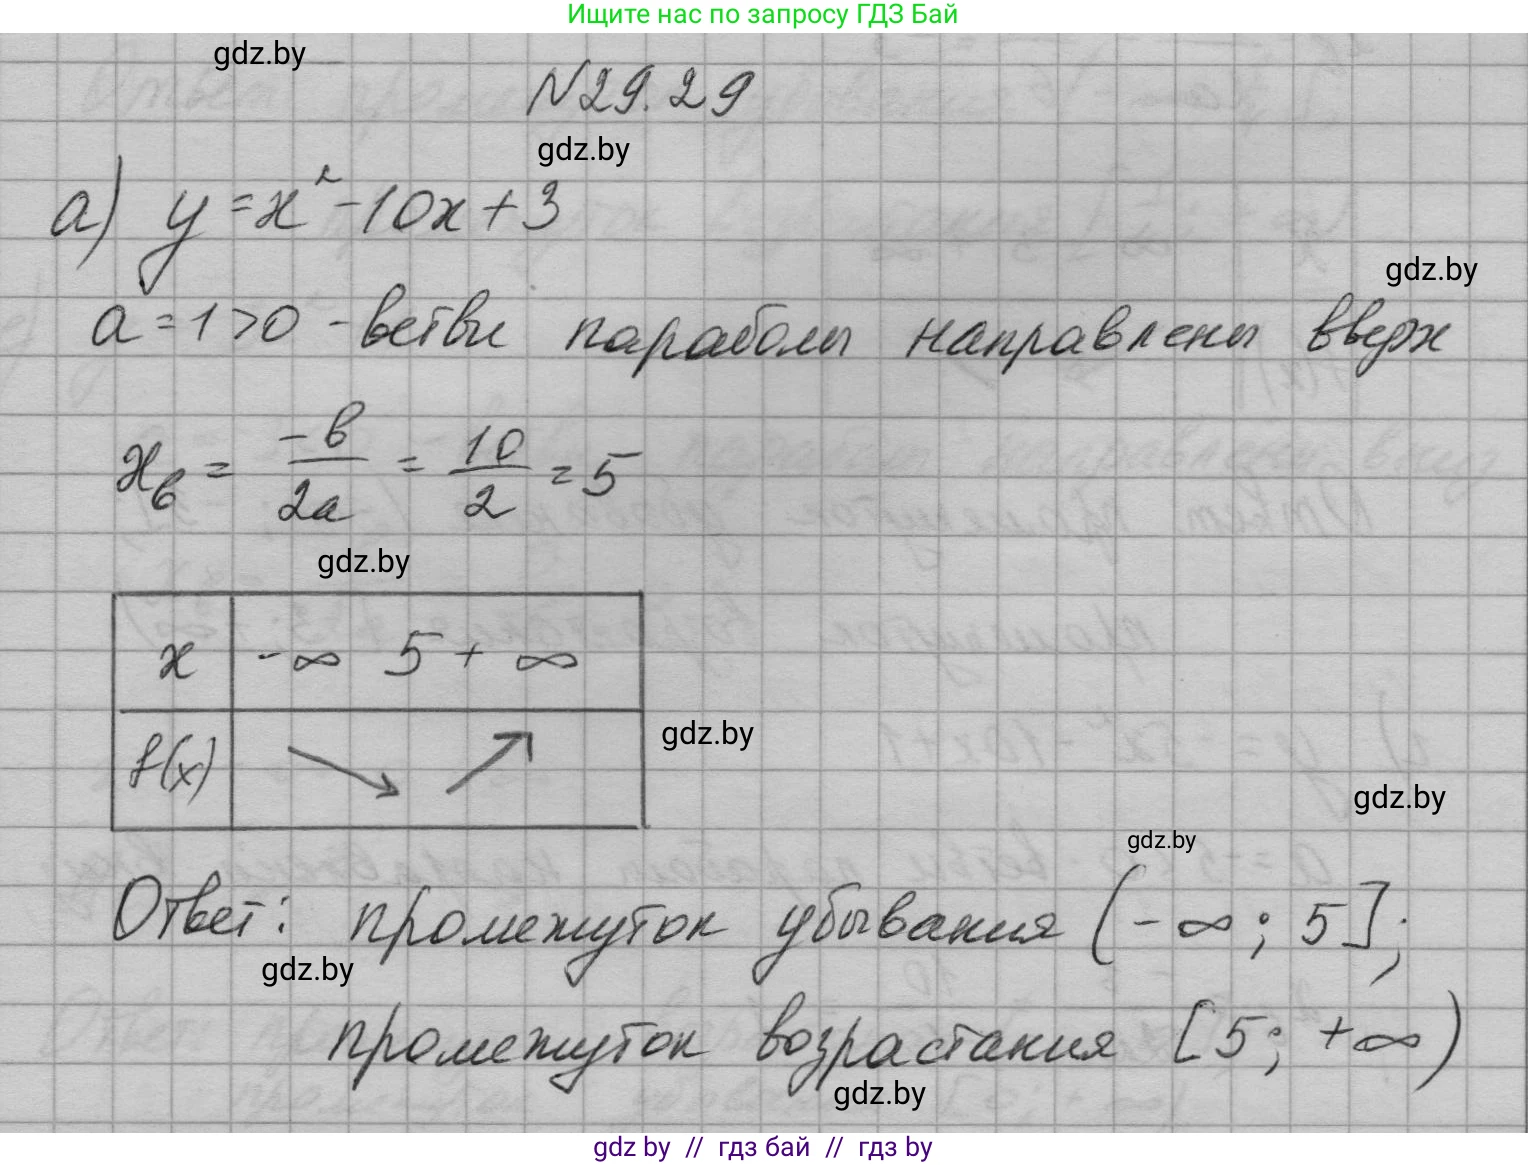 Ищите нас по запросу ГДЗ Бай
gdz.by
N29.29
gdz.by
а) y = x² - 10x + 3
gdz.by
a = 1 > 0 - ветви параболы направлены вверх
xв = -в/2a = 10/2 = 5
gdz.by
x -∞ 5 +∞
f(x) ↘ ↗
gdz.by
gdz.by
gdz.by
Ответ: промежуток убывания (-∞; 5];
gdz.by
промежуток возрастания [5; +∞)
gdz.by
gdz by // гдз бай // гдз by